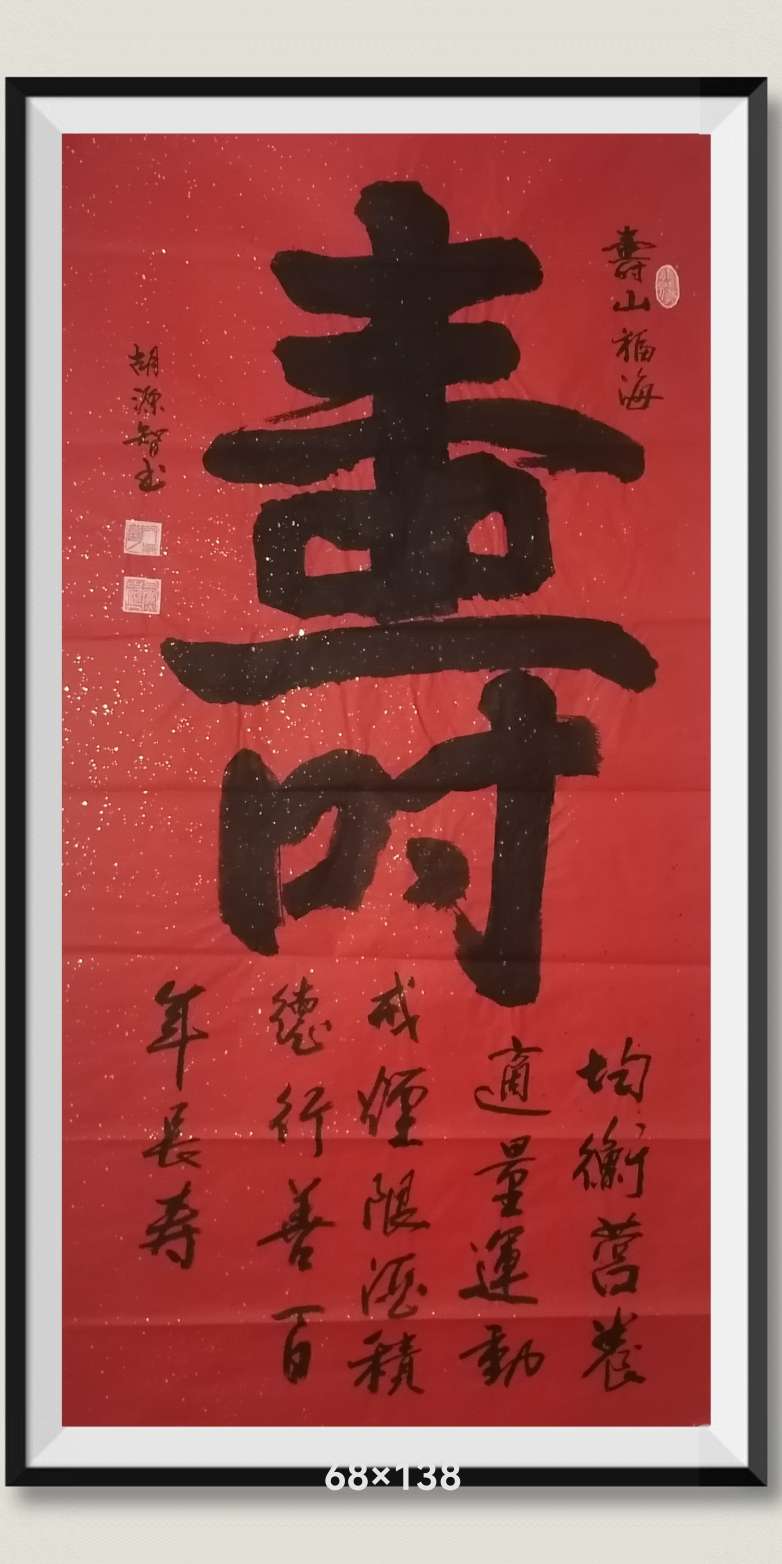 壽
壽山福海
均衡營養
適量運動
戒煙限酒積
德行善百
年長寿
胡源智书
68×138